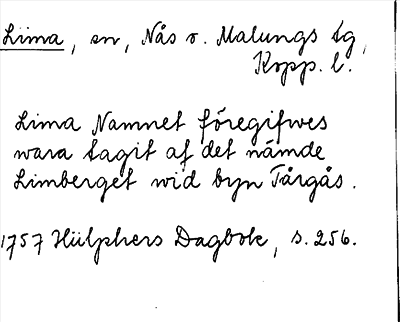 Lima, sn, Nås o. Malungs tg,
Kopp. l.
Lima Namnet föregifwes
wara tagit af det nämde
Limberget wid byn Tårgås.
1757 Hülphers Dagbok, s. 256.